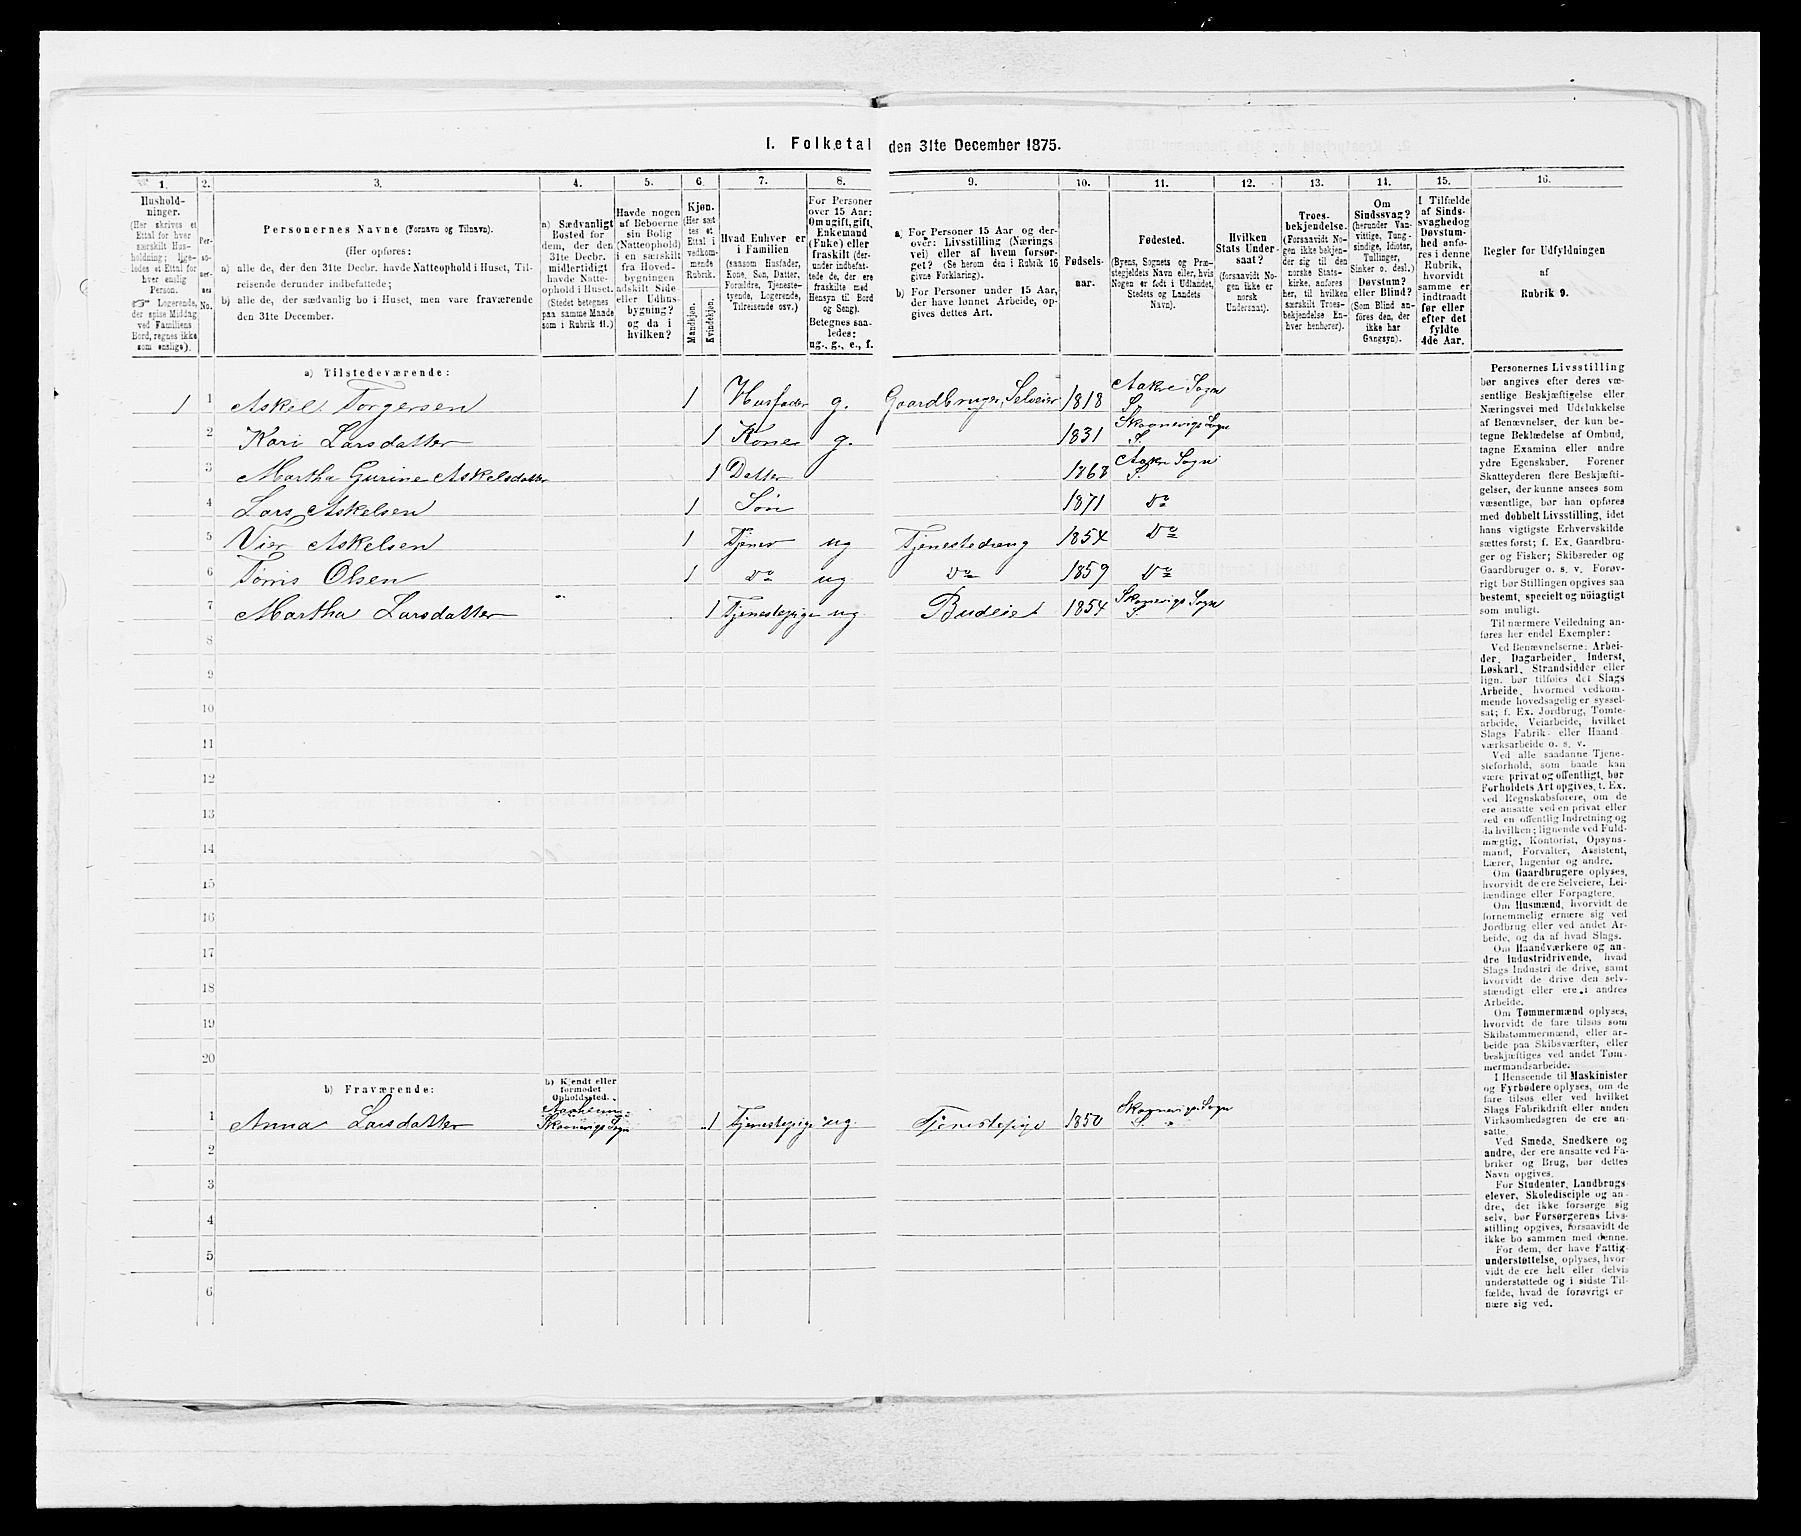 I. Folketal den 31te December 1875.
1. 2. 3. 4. 5. 6. 7. 8. 9. 10. 11. 12. 13. 14. 15. 16.
Hushold-
ninger.
(Her skrives et
Ettal for hver
særskilt Hus-
holdning; lige-
ledes et Ettal for
hver enslig
Person.
Logerende,
der spise Middag
ved Familiens
Bord, regnes ikke
som enslige).
Per-
so-
ner-
nes
No.
Personernes Navne (Fornavn og Tilnavn).
(Her opføres:
a) alle de, der den 31te Decbr. havde Natteophold i Huset, Til-
reisende derunder indbefattede;
b) alle de, der sædvanlig bo i Huset, men vare fraværende
den 31te December.
a) Sædvanligt
Bosted for
dem, der den
31te Decbr.
midlertidigt
havde Natte-
ophold i Huset.
(Stedet betegnes
paa samme Maade
som i Rubrik 11.)
Havde nogen
af Beboerne
sin Bolig
(Natteophold)
i en særskilt
fra Hoved-
bygningen
adskilt Side
eller Udhus-
bygning?
og da i
hvilken?
Kjøn.
(Her sæt-
tes et
Ettal i
vedkom-
mende
Rubrik.
Mandkjøn.
Kvindekjøn.
Hvad Enhver er
i Familien
(saasom Husfader,
Kone, Søn, Datter,
Forældre, Tjeneste-
tyende, Logerende,
Tilreisende osv.)
For Personer
over 15 Aar:
Om ugift, gift,
Enkemand
(Enke) eller
fraskilt (der-
under indbefat-
tede de, der ere
fraskilte med
Hensyn til Bord
og Seng).
Betegnes saa-
ledes:
ug., g., e., f.
a) For Personer 15 Aar og der-
over: Livsstilling (Nærings-
vei) eller af hvem forsør-
get? (Se herom den i Rubrik 16
givne Forklaring).
b) For Personer under 15 Aar,
der have lønnet Arbeide, op-
gives dettes Art.
Fødsels-
aar.
Fødested.
(Byens, Sognets og Præ-
stegjeldets Navn eller, hvis
Nogen er født i Udlandet,
Stedets og Landets
Navn).
Hvilken
Stats Under-
saat?
(forsaavidt No-
gen ikke er
norsk
Undersaat).
Troes-
bekjendelse.
(Forsaavidt No-
gen ikke bekjen-
der sig til den
norske Stats-
kirke, anføres
her, til hvilken
særskilt Troes-
bekjendelse En-
hver henhører).
Om
Sindssvag?
(herunder Van-
vittige, Tung-
sindige, Idioter,
Tullinger,
Sinker o. desl.)
Døvstum?
eller Blind?
(Som Blind an-
føres den, der
ikke har
Gangsyn).
I Tilfælde
af Sinds-
svaghed og
Døvstum-
hed anfø-
res i denne
Rubrik,
hvorvidt
samme er
indtraadt
før eller
efter det
fyldte
4de Aar.
Regler for Udfyldningen
af
Rubrik 9.
a) Tilstedeværende:
1 1 Askel Torgersen 1 Husfader g. Gaardbruger, Selveier 1818 Aakre Sogn S.
2 Kari Larsdatter 1 Kone g. 1831 Skaanevigs Sogn S.
3 Martha Gurine Askelsdatter 1 Datter 1868 Aakre Sogn S.
4 Lars Askelsen 1 Søn 1871 Do
5 Vier Askelsen 1 Tjener ug Tjenestedreng 1854 Do
6 Tørris Olsen 1 Do ug Do 1859 Do
7 Martha Larsdatter " 1 Tjenestepige ug. Budeie 1854 Skaanevigs Sogn S.
8
9
10
11
12
13
14
15
16
17
18
19
20
b) Fraværende:
b) Kjendt eller
formodet
Opholdssted.
1 Anna Larsdatter Skaanevigs Sogn 1 Tjenestepige ug. Tjenestepige 1850 Skaanevigs Sogn S.
2
3
4
5
6
Personernes Livsstilling
bør angives efter deres væ-
sentlige Beskjæftigelse eller
Næringsvei med Udelukkelse
af Benævnelser, der kun be-
tegne Beklædelse af Ombud,
tagne Examina eller andre
ydre Egenskaber. Forener
Skatteyderen flere Beskjæfti-
gelser, der kunne ansees som
væsentlige, bør han opføres
med dobbelt Livsstilling, idet
hans vigtigste Erhvervskilde
sættes først; f. Ex. Gaardbru-
ger og Fisker; Skibsreder og
Gaardbruger o. s. v. Forøv-
rigt bør Stillingen opgives saa
bestemt, specielt og nøiagtigt
som muligt.
Til nærmere Veiledning an-
føres her endel Exempler:
Ved Benævnelserne: Arbei-
der, Dagarbeider, Inderst,
Løskarl, Strandsidder eller
lign. bør tilføies det Slags
Arbeide, hvormed vedkom-
mende hovedsagelig er syssel-
sat; f. Ex. Jordbrug, Tomte-
arbeide, Veiarbeide, hvilket
Slags Fabrik- eller Haand-
værksarbeide o. s. v.
Ved alle saadanne Tjene-
steforhold, som baade kan
være privat og offentligt, bør
Forholdets Art opgives, t. Ex.
ved Regnskabsførere, om de
ere ansatte ved en privat eller
ved en offentlig Indretning og
da hvilken; lignende ved Fuld-
mægtig, Kontorist, Opsyns-
mand, Forvalter, Assistent,
Lærer, Ingeniør og andre.
Om Gaardbrugere oplyses,
hvorvidt de ere Selveiere, Lei-
lændinge eller Forpagtere.
Om Husmænd, hvorvidt de
fornemmelig ernære sig ved
Jordbrug eller ved andet Ar-
beide, og da af hvad Slags.
Om Haandværkere og an-
dre Industridrivende, hvad
Slags Industri de drive, samt
hvorvidt de drive den selv-
stændigt eller ere i andres
Arbeide.
Om Tømmermænd oplyses,
hvorvidt de fare tilsøs som
Skibstømmermænd, eller ar-
beide paa Skibsværfter, eller
beskjæftiges ved andet Tøm-
mermandsarbeide.
I Henseende til Maskinister
og Fyrbødere oplyses, om de
fare tilsøs eller ved hvilket
Slags Fabrikdrift eller anden
Virksomhedsgren de ere an-
satte.
Ved Smede, Snedkere og
andre, der ere ansatte ved Fa-
briker og Brug, bør dettes
Navn opgives.
For Studenter, Landbrugs-
elever, Skoledisciple og an-
dre, der ikke forsørge sig
selv, bør Forsørgerens Livs-
stilling opgives, forsaavidt de
ikke bo sammen med denne.
For dem, der have Fattig-
understøttelse, oplyses, hvor-
vidt de ere helt eller delvis
understøttede og i sidste Til-
fælde, hvad de forøvrigt er-
nære sig ved.